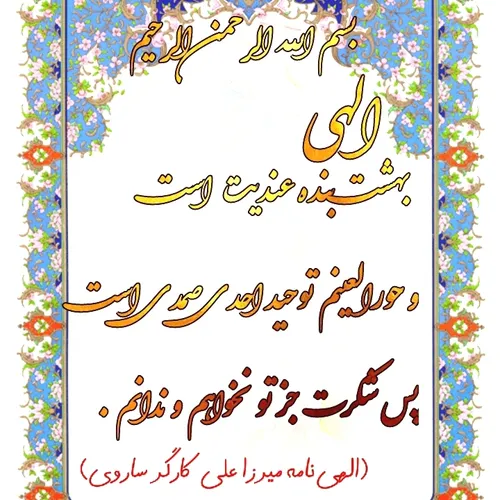 بسم الله الرحمن الرحیم
الهی
بهشت بنده عندیت است
و حورالعینم توحید احدی صمدی است
پس شکرت جز تو نخواهم و ندانم .
(الهی نامه میرزا علی کارگر ساروی)